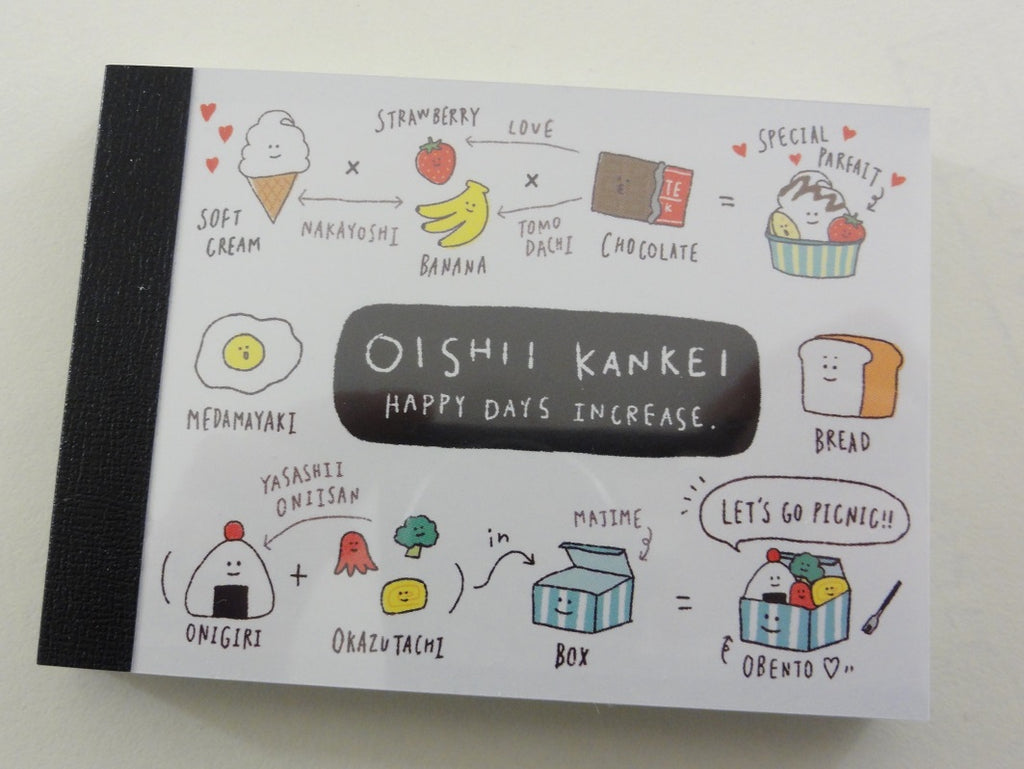 STRAWBERRY
LOVE
SPECIAL
PARFAIT
SOFT
CREAM
NAKAYOSHI
BANANA
TOMO
DACHI
TE
K
CHOCOLATE
=
OISHII KANKEI
HAPPY DAYS INCREASE.
MEDAMAYAKI
BREAD
YASASHII
ONIISAN
in
MAJIME
LET'S GO PICNIC!!
ONIGIRI
+
OKAZUTACHI
BOX
=
OBENTO ♡